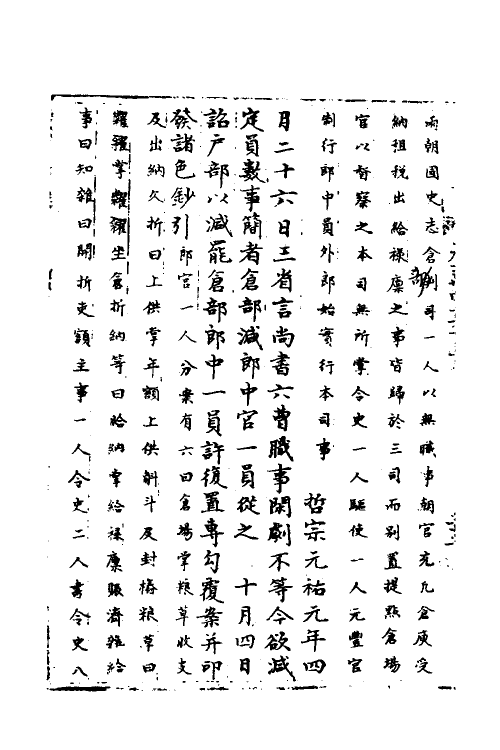 兩朝國史志倉部判司一人以無職事朝官充凡倉庾受
納租稅出給祿廩之事皆歸於三司而別置提點倉場
官以督察之本司無所掌令史一人驅使一人元豐官
制行郎中員外郎始實行本司事
哲宗元祐元年四
月二十六日三省言尚書六曹職事閑劇不等今欲減
定員數事簡者倉部減郎中官一員從之 十月四日
詔戶部以減罷倉部郎中一員許復置專勾覆案并印
發諸色鈔引郎官一人分案有六曰倉場掌粮草收支
及出納欠折曰上供掌年額上供斛斗及封樁粮草曰
糶糴掌糶糴坐倉折納等曰給納掌給祿廩賑濟雜給
事曰知雜曰開折吏額主事一人令史二人書令史八